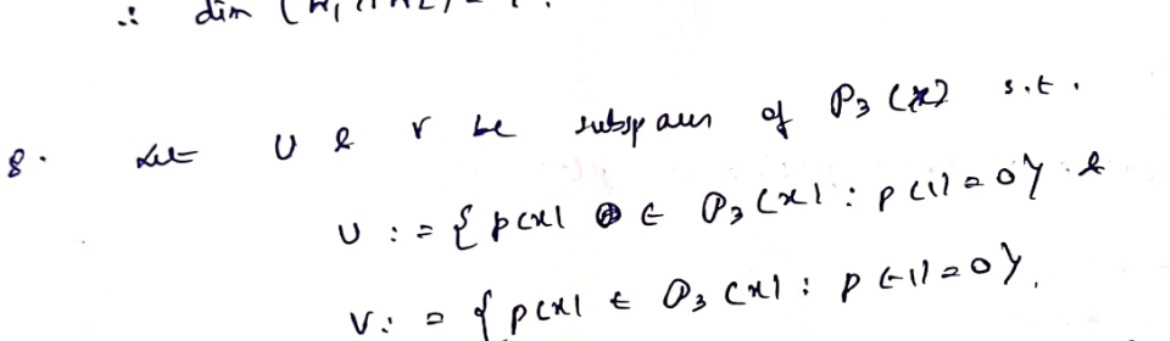 ∴ dim (W₁ ∩ W₂) = 1.
8. Let U & V be subspaces of P₃(x) s.t.
U := {p(x) ∈ P₃(x) : p(1) = 0} &
V := {p(x) ∈ P₃(x) : p(-1) = 0}.